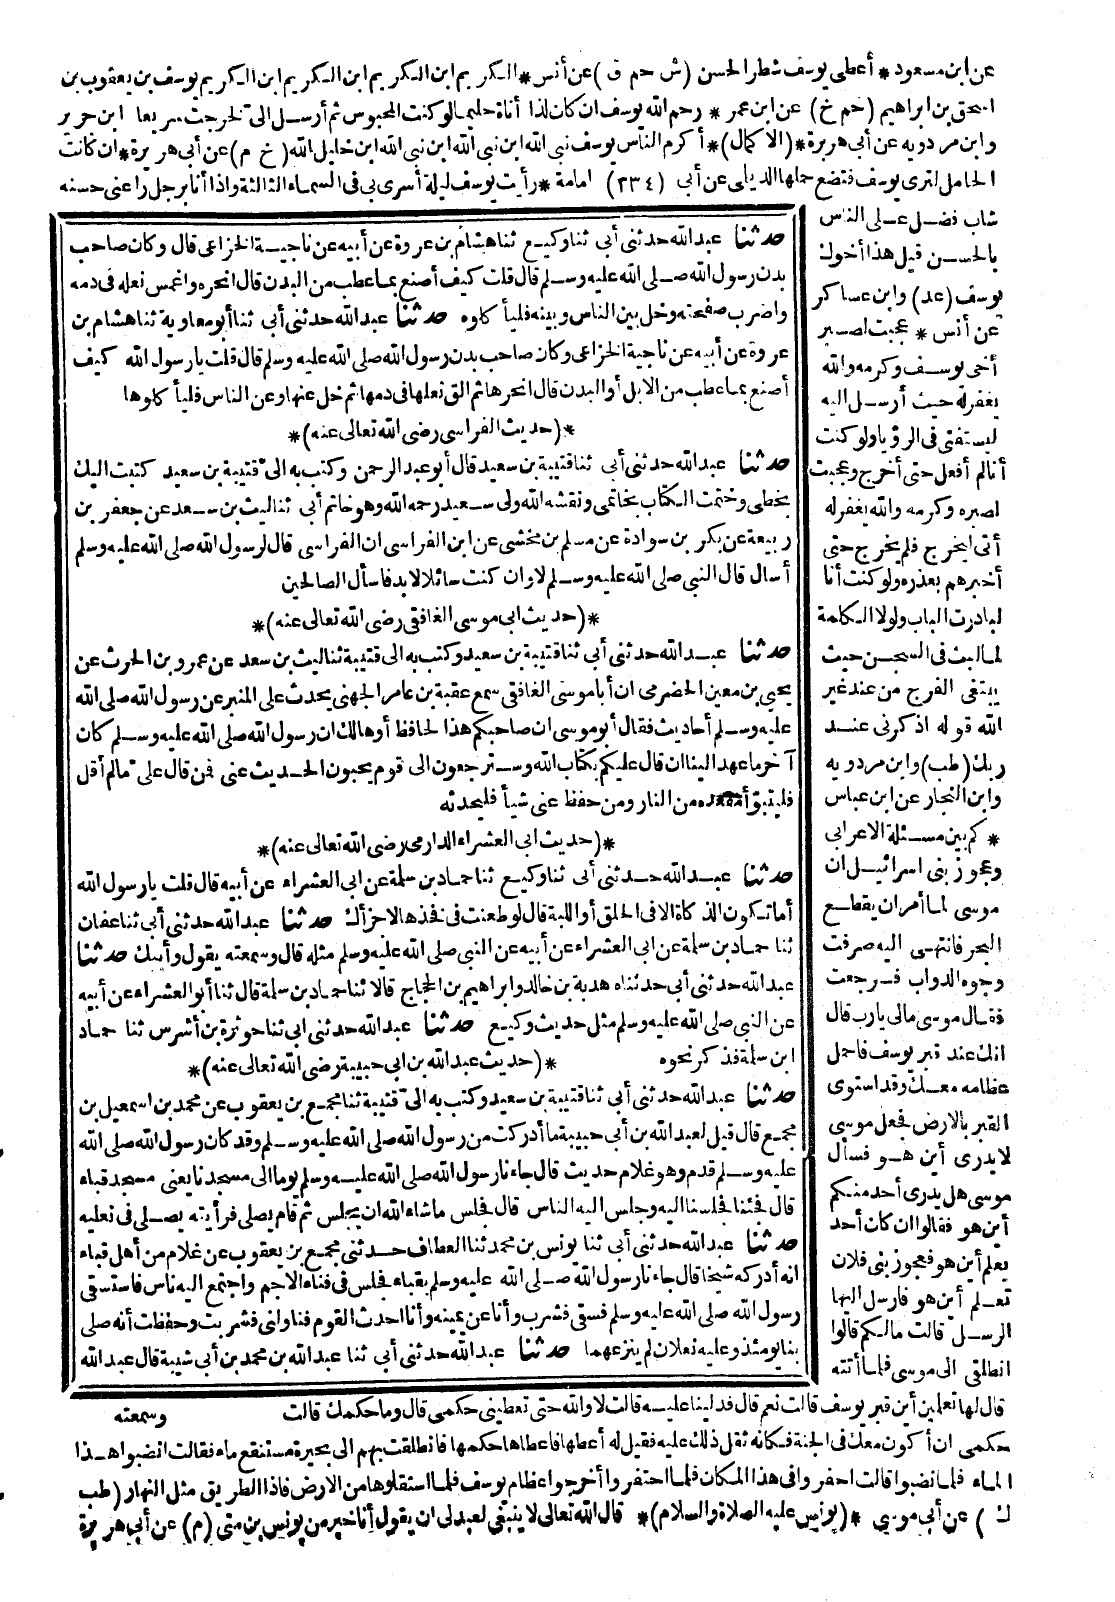 عن ابن مسعود * أعطى يوسف شطر الحسن (ش حم ق) عن أنس * الكريم ابن الكريم ابن الكريم ابن الكريم يوسف بن يعقوب بن
اسحق بن ابراهيم (حم خ) عن ابن عمر * رحم الله يوسف ان كان لذا أناة حليما لو كنت المحبوس ثم أرسل الى لخرجت سريعا ابن جرير
وابن مردويه عن أبي هريرة * (الاكمال) * أكرم الناس يوسف نبي الله ابن نبي الله ابن نبي الله ابن خليل الله (خ م) عن أبي هريرة * ان كانت
الحامل لترى يوسف فتضع حملها الديلمى عن أبي (٣٣٤) امامة * رأيت يوسف ليلة أسرى بى فى السماء الثالثة واذا أنا برجل راعنى حسنه
شاب فضل على الناس
بالحسن قيل هذا أخوك
يوسف (عد) وابن عساكر
عن أنس * عجبت لصبر
أخى يوسف وكرمه والله
يغفر له حيث أرسل اليه
ليستفتى فى الرؤيا ولو كنت
أنا لم أفعل حتى أخرج وعجبت
لصبره وكرمه والله يغفر له
أتى ليخرج فلم يخرج حتى
أخبرهم بعذره ولو كنت أنا
لبادرت الباب ولولا الكلمة
لما لبث فى السجن حيث
يبتغى الفرج من عند غير
الله قوله اذكرنى عند
ربك (طب) وابن مردويه
وابن النجار عن ابن عباس
* كم بين مسئلة الاعرابى
وعجوز بنى اسرائيل ان
موسى لما أمر ان يقطع
البحر فانتهى اليه صرفت
وجوه الدواب فرجعت
فقال موسى مالى يارب قال
انك عند قبر يوسف فاحمل
عظامه معك وقد استوى
القبر بالارض فجعل موسى
لا يدرى أين هو فسأل
موسى هل يدرى أحد منكم
أين هو فقالوا ان كان أحد
يعلم أين هو فعجوز بنى فلان
تعلم أين هو فارسل اليها
الرسل قالت مالكم قالوا
انطلقى الى موسى فلما أتته
حدثنا عبد الله حدثنى أبى ثنا وكيع ثنا هشام بن عروة عن أبيه عن ناجية الخزاعى قال وكان صاحب
بدن رسول الله صلى الله عليه وسلم قال قلت كيف أصنع بما عطب من البدن قال انحره واغمس نعله فى دمه
واضرب صفحته وخل بين الناس وبينه فليأكلوه حدثنا عبد الله حدثنى أبى ثنا أبو معاوية ثنا هشام بن
عروة عن أبيه عن ناجية الخزاعى وكان صاحب بدن رسول الله صلى الله عليه وسلم قال قلت يا رسول الله كيف
أصنع بما عطب من الابل أو البدن قال انحرها ثم الق نعلها فى دمها ثم خل عنها وعن الناس فليأكلوها
* (حديث الفراسى رضى الله تعالى عنه) *
حدثنا عبد الله حدثنى أبى ثنا قتيبة بن سعيد قال أبو عبد الرحمن وكتب به الى قتيبة بن سعيد كتبت اليك
بخطى وختمت الكتاب بخاتمى ونقشه الله ولى سعيد رحمه الله وهو خاتم أبى ثنا ليث بن سعد عن جعفر بن
ربيعة عن بكر بن سوادة عن مسلم بن مخشى عن ابن الفراسى ان الفراسى قال لرسول الله صلى الله عليه وسلم
أسأل قال النبى صلى الله عليه وسلم لا وان كنت سائلا لا بد فاسأل الصالحين
* (حديث ابى موسى الغافقى رضى الله تعالى عنه) *
حدثنا عبد الله حدثنى أبى ثنا قتيبة بن سعيد وكتب به الى قتيبة ثنا ليث بن سعد عن عمرو بن الحرث عن
يحيى بن معين الحضرمى ان أبا موسى الغافقى سمع عقبة بن عامر الجهنى يحدث على المنبر عن رسول الله صلى الله
عليه وسلم أحاديث فقال أبو موسى ان صاحبكم هذا لحافظ أو هالك ان رسول الله صلى الله عليه وسلم كان
آخر ما عهد الينا ان قال عليكم بكتاب الله وسترجعون الى قوم يحبون الحديث عنى فمن قال على مالم أقل
فليتبوأ مقعده من النار ومن حفظ عنى شيأ فليحدثه
* (حديث ابى العشراء الدارمى رضى الله تعالى عنه) *
حدثنا عبد الله حدثنى أبى ثنا وكيع ثنا حماد بن سلمة عن ابى العشراء عن أبيه قال قلت يا رسول الله
أما تكون الذكاة الا فى الحلق أو اللبة قال لو طعنت فى فخذها لاجزأك حدثنا عبد الله حدثنى أبى ثنا عفان
ثنا حماد بن سلمة عن ابى العشراء عن أبيه عن النبى صلى الله عليه وسلم مثله قال وسمعته يقول وأبيك حدثنا
عبد الله حدثنى أبى حدثناه هدبة بن خالد وابراهيم بن الحجاج قالا ثنا حماد بن سلمة قال ثنا أبو العشراء عن أبيه
عن النبى صلى الله عليه وسلم مثل حديث وكيع حدثنا عبد الله حدثنى ابى ثنا حوثرة بن أشرس ثنا حماد
ابن سلمة فذكر نحوه * (حديث عبد الله بن ابى حبيبة رضى الله تعالى عنه) *
حدثنا عبد الله حدثنى أبى ثنا قتيبة بن سعيد وكتب به الى قتيبة ثنا مجمع بن يعقوب عن محمد بن اسمعيل بن
مجمع قال قيل لعبد الله بن أبى حبيبة ما أدركت من رسول الله صلى الله عليه وسلم وقد كان رسول الله صلى الله
عليه وسلم قدم وهو غلام حديث قال جاءنا رسول الله صلى الله عليه وسلم يوما الى مسجدنا يعنى مسجد قباء
قال فجئنا فجلسنا اليه وجلس اليه الناس قال فجلس ما شاء الله ان يجلس ثم قام يصلى فرأيته يصلى فى نعليه
حدثنا عبد الله حدثنى أبى ثنا يونس بن محمد ثنا العطاف حدثنى مجمع بن يعقوب عن غلام من أهل قباء
انه أدركه شيخا قال جاءنا رسول الله صلى الله عليه وسلم بقباء فجلس فى فناء الاجم واجتمع اليه ناس فاستسقى
رسول الله صلى الله عليه وسلم فسقى فشرب وأنا عن يمينه وأنا احدث القوم فناولنى فشربت وحفظت أنه صلى
بنا يومئذ وعليه نعلان لم ينزعهما حدثنا عبد الله حدثنى أبى ثنا عبد الله بن محمد بن أبى شيبة قال عبد الله
وسمعته
قال لها تعلمين أين قبر يوسف قالت نعم قال فدلينا عليه قالت لا والله حتى تعطينى حكمى قال وما حكمك قالت
حكمى ان أكون معك فى الجنة فكانه ثقل ذلك عليه فقيل له أعطها فاعطاها حكمها فانطلقت بهم الى بحيرة مستنقع ماء فقالت انضبوا هذا
الماء فلما نضبوا قالت احفروا فى هذا المكان فلما احتفروا أخرجوا عظام يوسف فلما استقلوها من الارض فاذا الطريق مثل النهار (طب
ك) عن أبى موسى * (يونس عليه الصلاة والسلام) * قال الله تعالى لا ينبغى لعبد لى ان يقول أنا خير من يونس بن متى (م) عن أبى هريرة